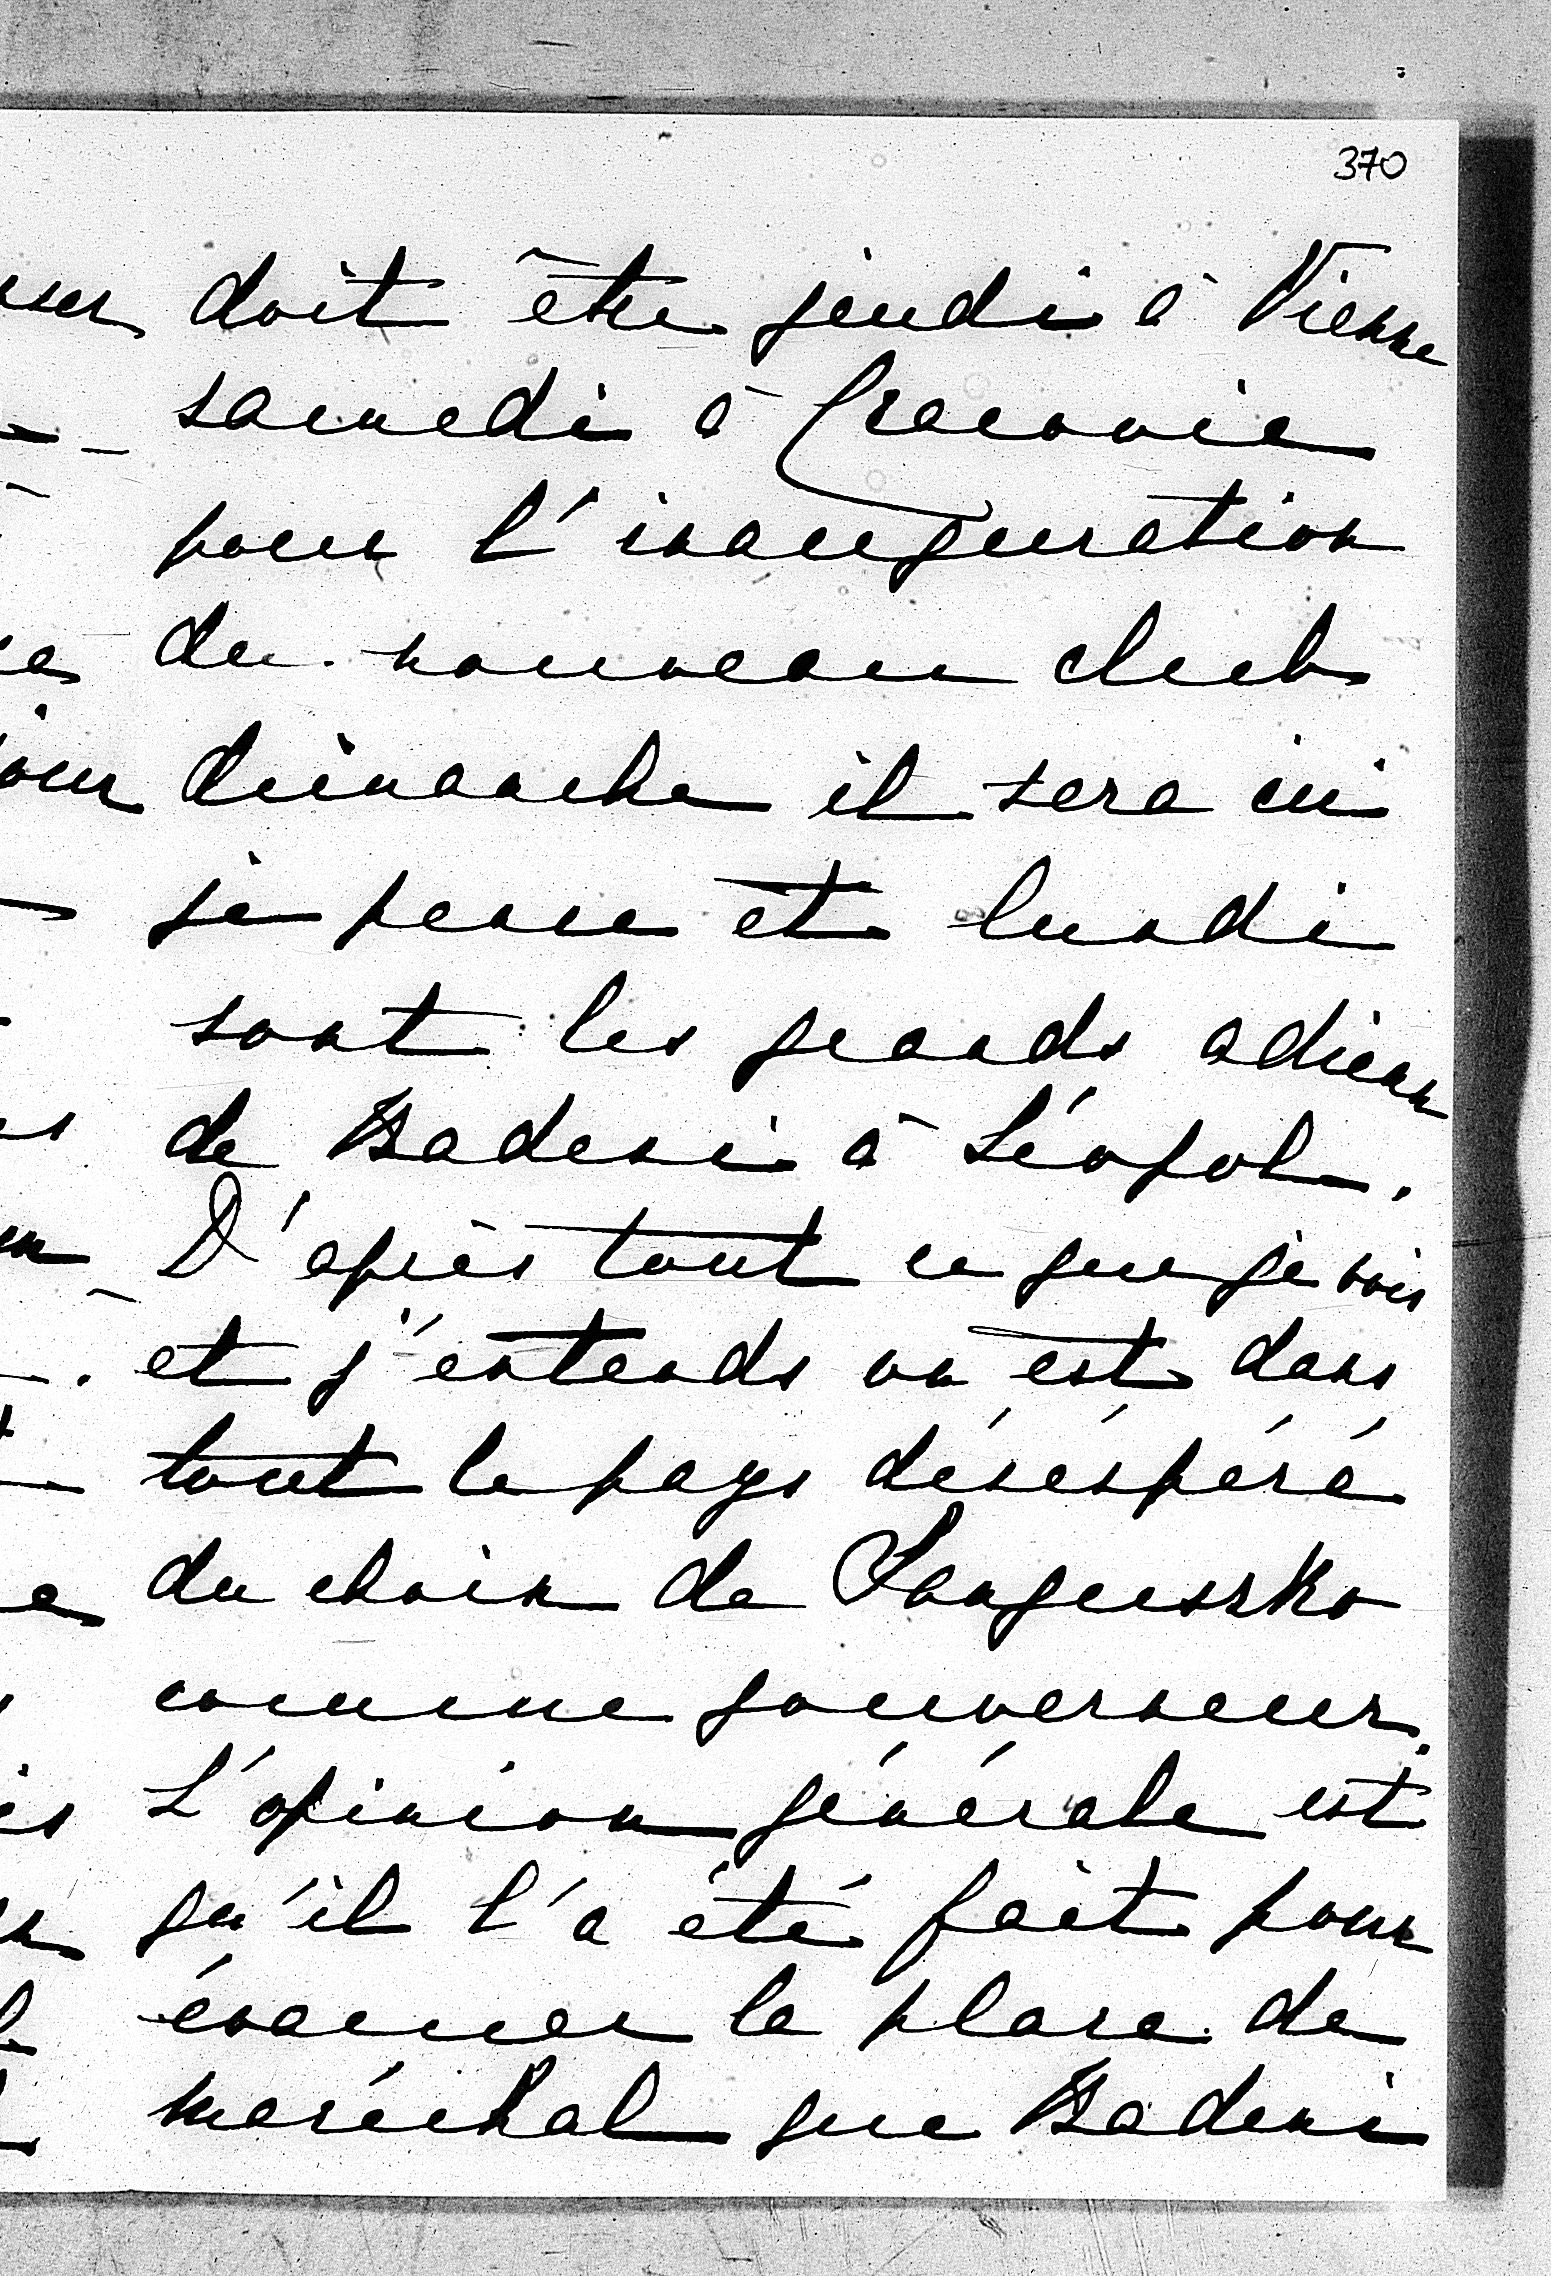 370
doit être jeudi à Vienne
samedi à Cracovie
pour l'inauguration
du nouveau club
dimanche il sera ici
je pense et lundi
sont les grands adieux
de Badeni à Léopol.
D'après tout ce que je vois
et j'entends on est dans
tout le pays désespéré
du choix de Sanguszko
comme gouverneur.
L'opinion générale est
qu'il l'a été fait pour
évacuer la place de
maréchal que Badeni